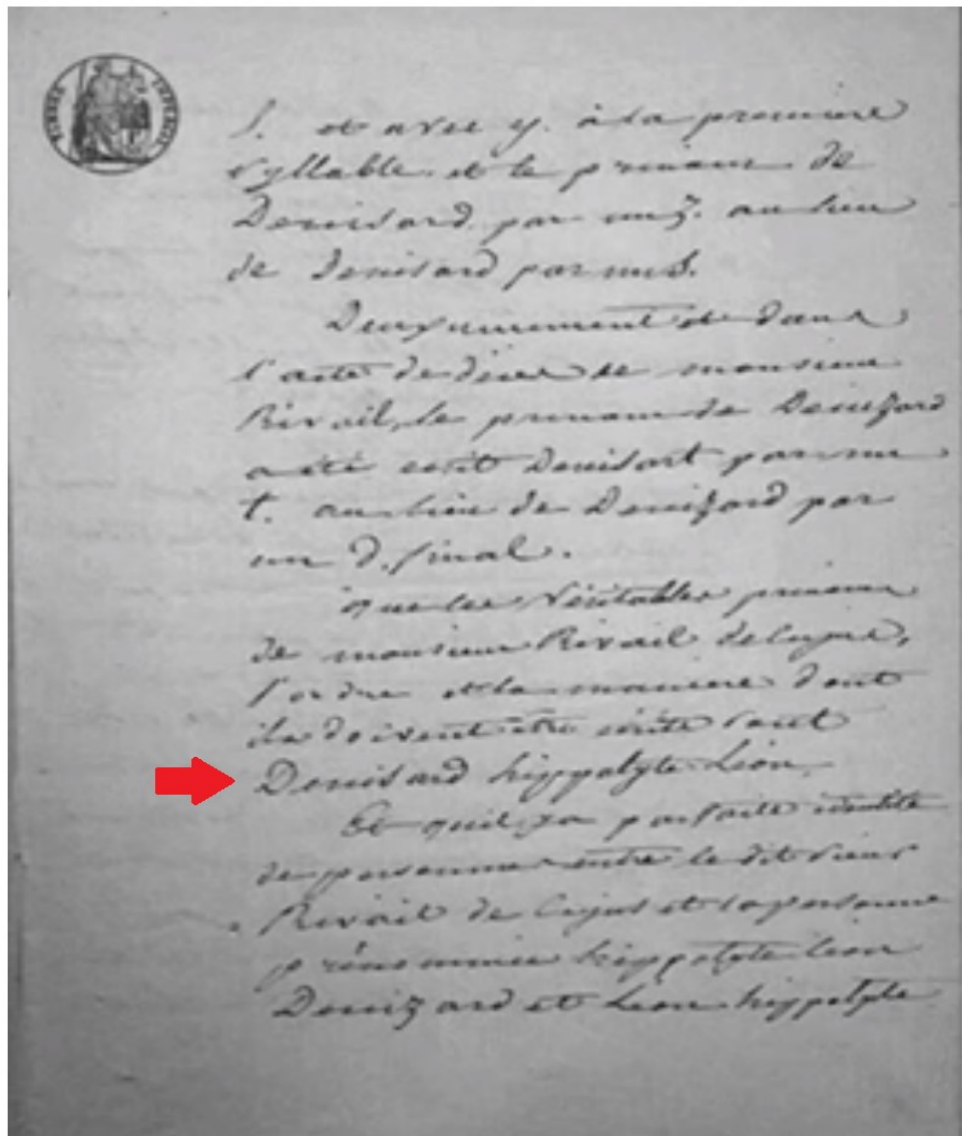 TIMBRE IMPERIAL
l. et avec y. à la première
syllable. et le prénom de
Denisard par un z. au lieu
de Denisard par un s.
Deuxiemement et dans
l'acte de décès de monsieur
Rivail, le prénom de Denizard
a été écrit Denisart par un
t. au lieu de Denizard par
un D. final.
que les véritables prénoms
de monsieur Rivail de Cujus,
l'ordre et la manière dont
ils doivent être écrits sont
Denisard hippolyte Léon,
Et qu'il y a parfaite identité
de personne entre le dit sieur
Rivail de Cujus et la personne
prénommée hippolyte Léon
Denizard et Léon hippolyte